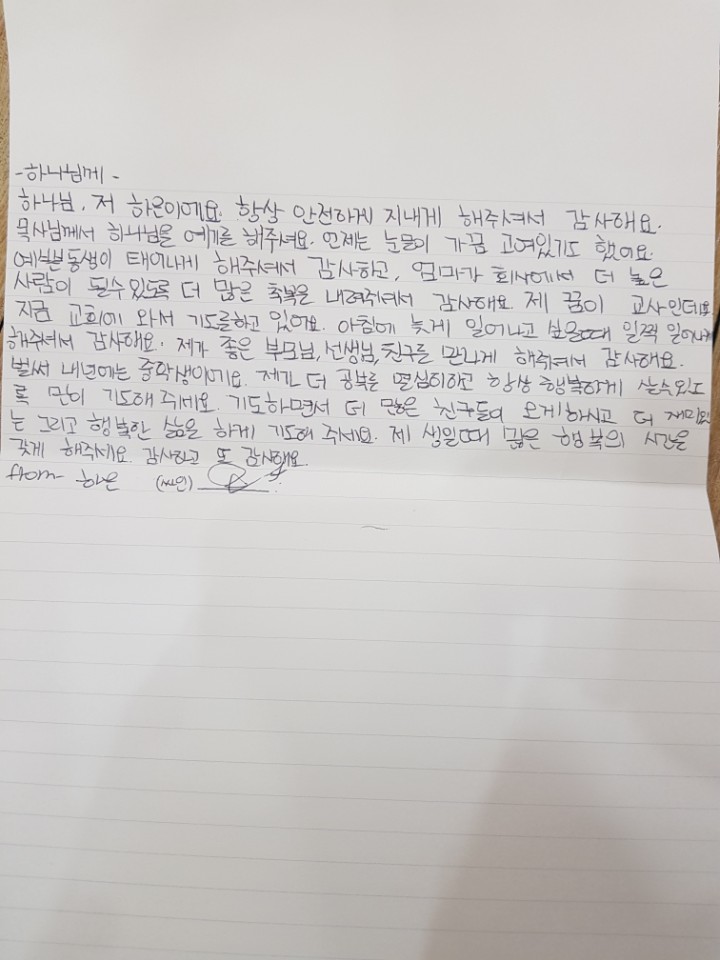 -하나님께-
하나님, 저 하은이에요. 항상 안전하게 지내게 해주셔서 감사해요.
목사님께서 하나님을 예기를 해주셔요. 언제는 눈물이 가끔 고여있기도 했어요.
예쁜동생이 태어나게 해주셔서 감사하고, 엄마가 회사에서 더 높은
사람이 될수있도록 더 많은 축복을 내려주셔서 감사해요. 제 꿈이 교사인데요.
지금 교회에 와서 기도를하고 있어요. 아침에 늦게 일어나고 싶을때 일찍 일어나게
해주셔서 감사해요. 제가 좋은 부모님, 선생님, 친구를 만나게 해줘서 감사해요.
벌써 내년에는 중학생이에요. 제가 더 공부를 열심이하고 항상 행복하게 살수있도
록 많이 기도해 주세요. 기도하면서 더 많은 친구들이 오게하시고 더 재미있
는 그리고 행복한 삶을 하게 기도해 주세요. 제 생일때 많은 행복의 시간을
갖게 해주세요. 감사하고 또 감사해요.
from 하은 (싸인)